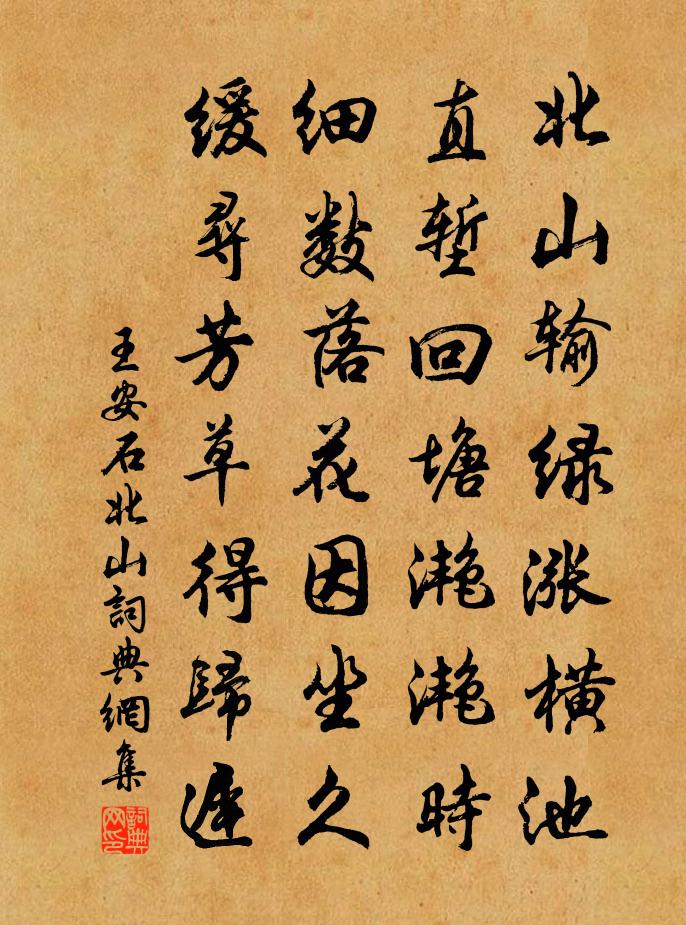 北山输绿涨横池
直堑回塘滟滟時
细数落花因坐久
缓尋芳草得歸遲
王安石北山詞典網集
詞典网印